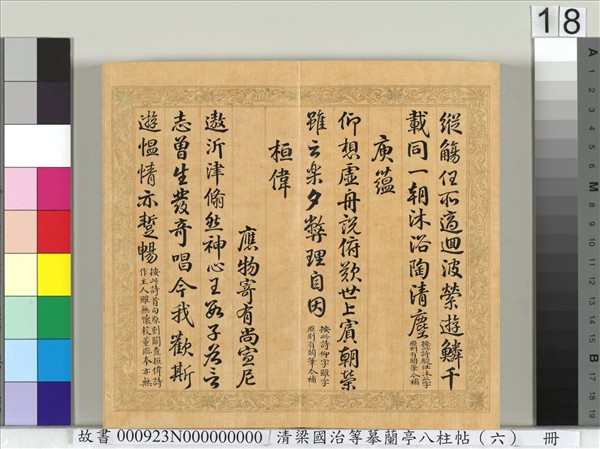 縱觴任所適迴波縈遊鱗千
載同一朝沐浴陶清塵
按此詩縱任沐三字
原刻有闕筆今補
庾蘊
仰想虛舟說俯歎世上賓朝榮
雖云樂夕弊理自因
按此詩仰字雖字
原刻有闕筆今補
桓偉
應物寄有尚宣尼
遨沂津翛然神心王數子各言
志曾生發奇唱今我歡斯
遊慍情亦蹔暢
按此詩首句原刻闕查桓偉詩
作主人雖無懷校董臨本亦無
18
故書 000923N000000000 清梁國治等摹蘭亭八柱帖（六） 冊